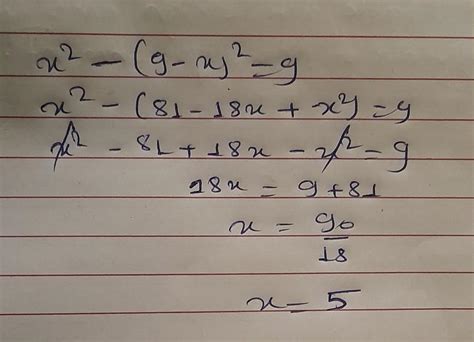 x² - (9 - x)² = 9
x² - (81 - 18x + x²) = 9
x² - 81 + 18x - x² = 9
18x = 9 + 81
x = 90/18
x = 5